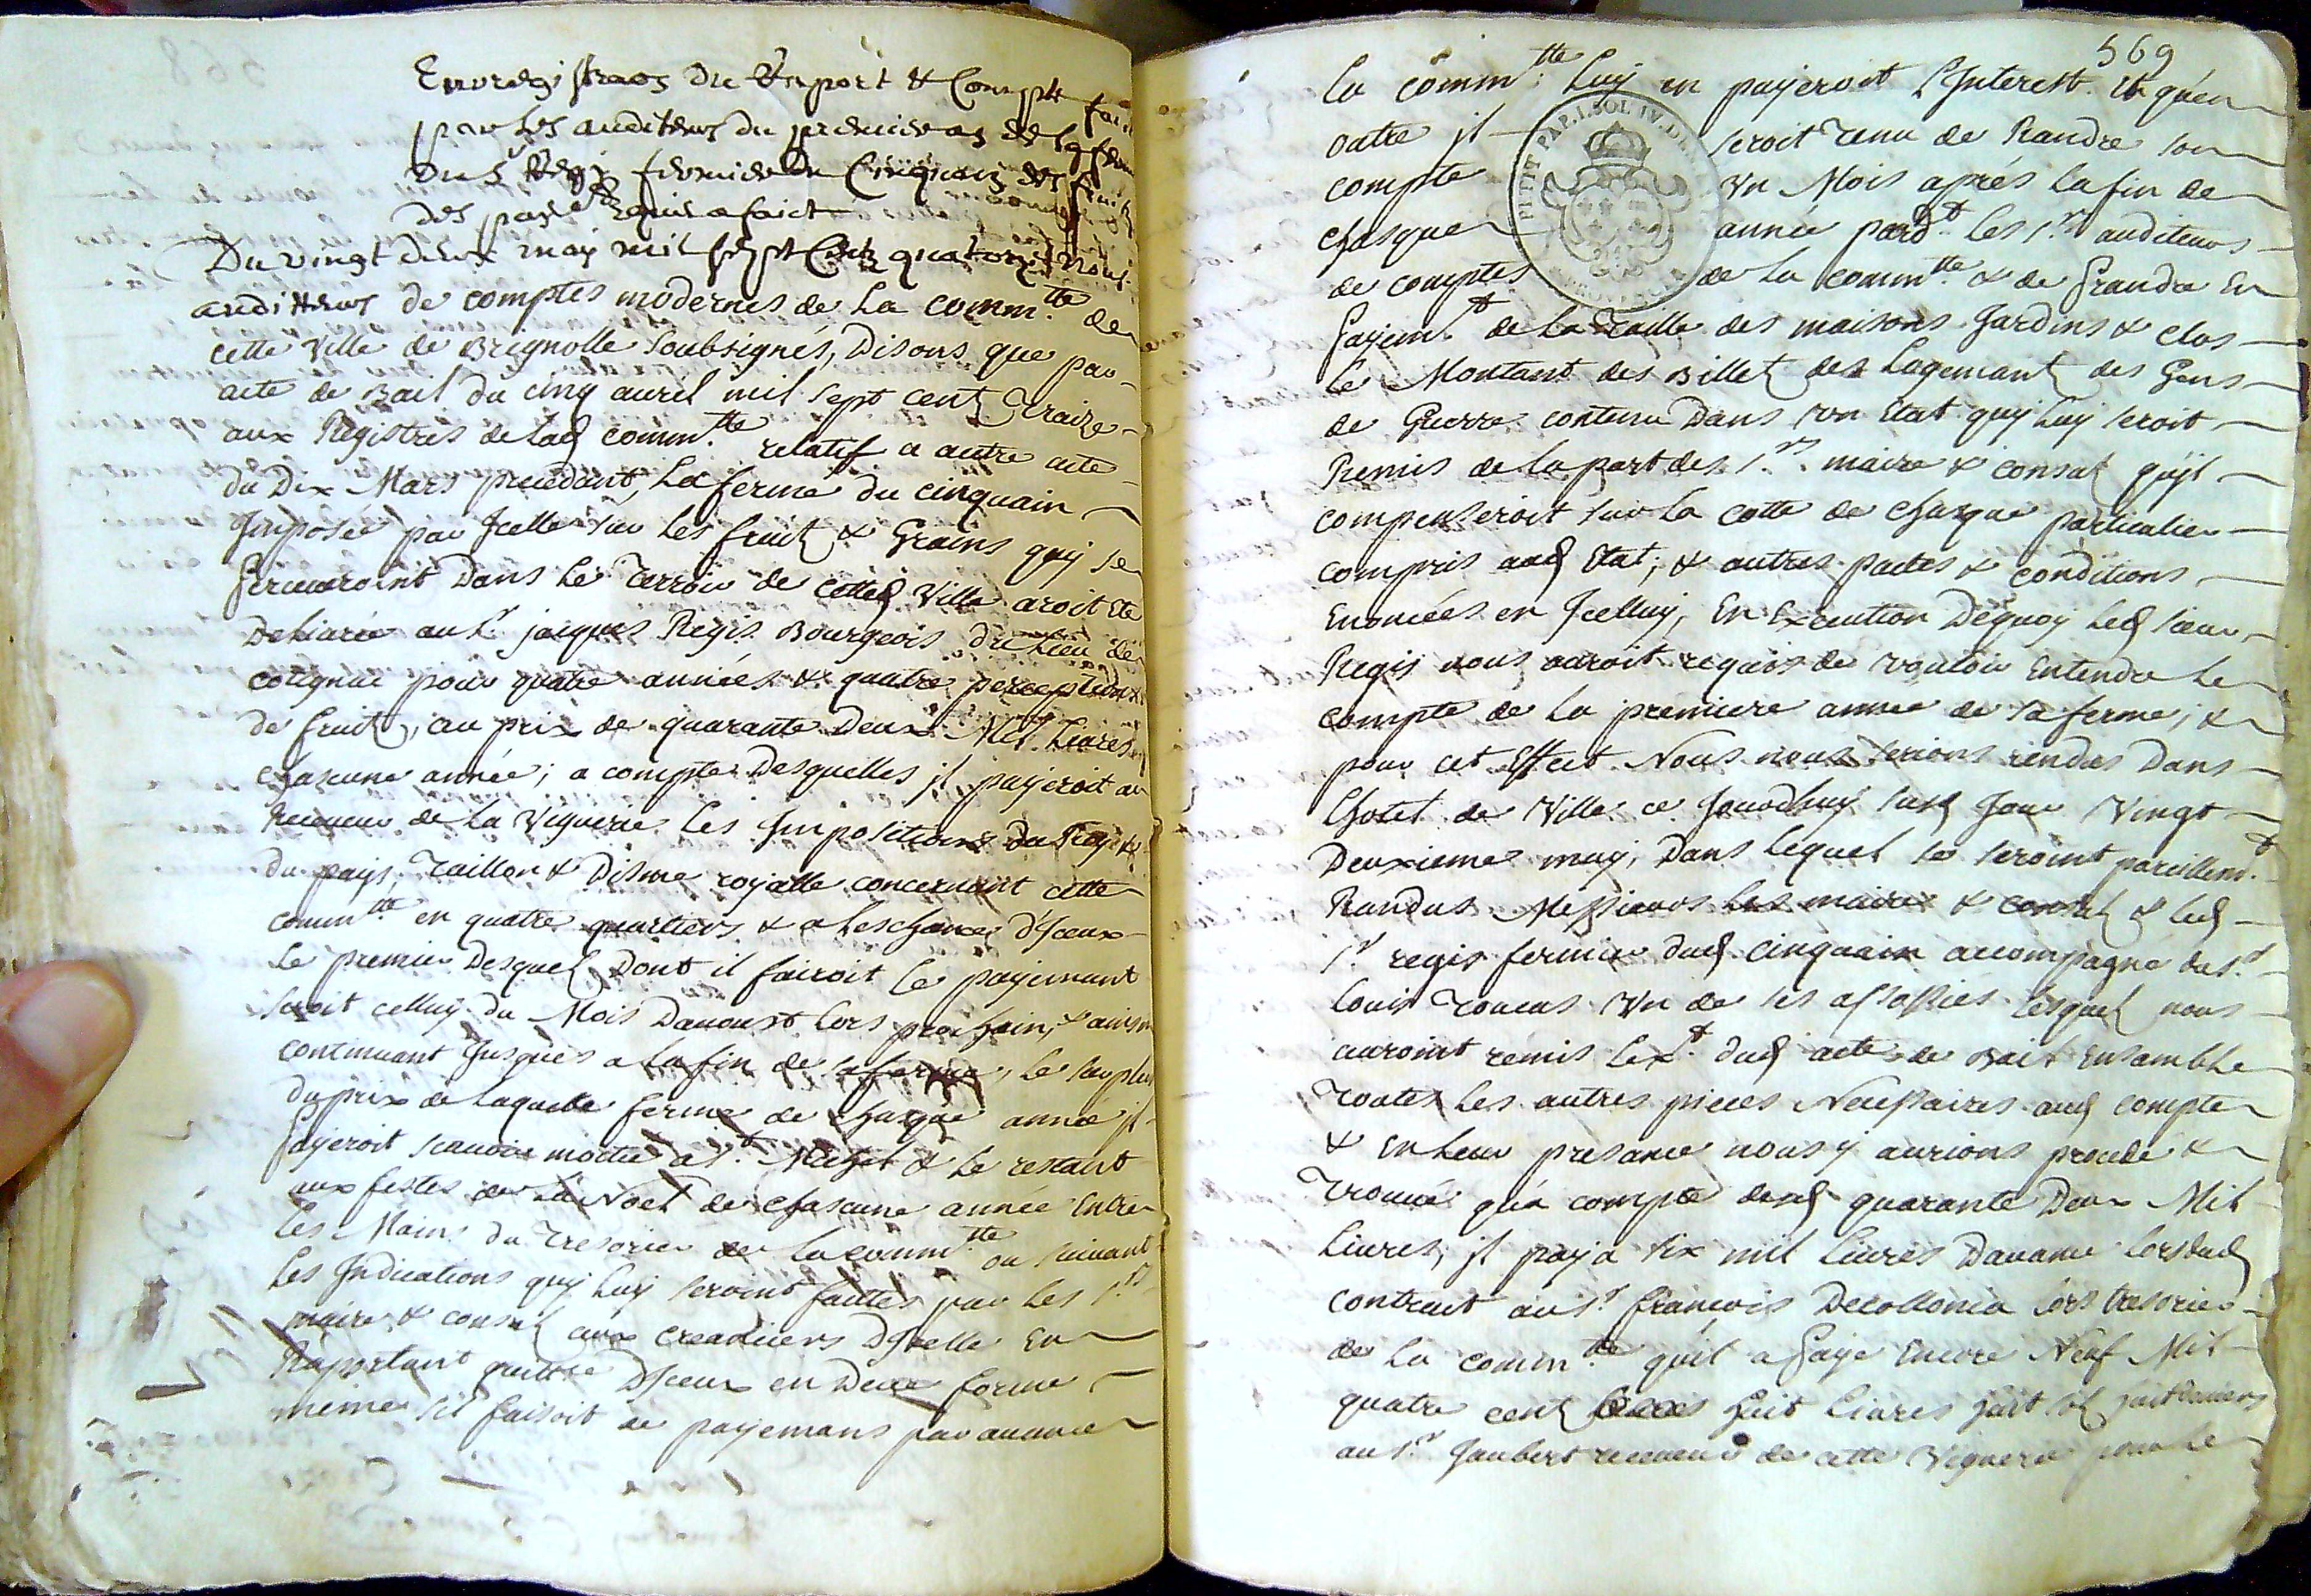 Enuregistraon du raport & Compte fait
par les auditeurs du premier an de la ferme
du Sr Regis fermier du Cinquain des fruits
des payes quil a faict
Du vingt deux may mil sept Cents quatorze nous
auditteurs de comptes modernes de la comm.tte de
cette Ville de Brignolle soubsignés, Disons que par
acte de Bail du cinq auril mil sept cent Traize
aux Registres de lad comm.tte relatif a autre acte
du Dix Mars precedant, La ferme du cinquain
Jmposée par Jcelle sur les fruits & Grains quy se
perceuroint Dans le Terroir de cetted Ville aroit Eté
Deliurée au Sr jacques Regis Bourgeois du Lieu de
cotignac pour quatre années & quatre perceptions
de fruits, au prix de quarante Deux Mil Liures
chascune année; a compte Desquelles jl payeroit au
Receueur de la Viguerie les Jmpositions du Roy &
du pays, Taillon & Disme royalle concernant cette
comm.tte en quatre quartiers & a leschance d'Jceux
le premier Desquels Dont il fairoit le payemant
seroit celluy du Mois Daoust lors prochain, & ainsin
continuant Jusques a la fin de sa ferme, le surplus
du prix de laquelle ferme de chasque année jl
payeroit scauoir moitié a St. Michel & le restant
aux festes de la Noel de chascune année Entre
les Mains du Tresorier de la comm.tte ou suiuant
les Jndications quy luy seroint faittes par les Srs
maire & consuls aux creanciers D'Jcelle En
Raportant quittce D'Jceux en Deue forme
même s'il faisoit de payemans par auance
569
la comm.tte luy en payeroit l'Jnterest. Et qu'en
outre jl seroit Tenu de Randre son
compte Vn Mois aprés la fin de
chasque année pardt les Srs auditeurs
de comptes de la comm.tte & de prandre En
payemt de la Taille des maisons Jardins & clos
le Montant des Billets des Lagemants des Gens
de Guerre contenu Dans vn Etat quy luy seroit
Remis de la part des Srs. maire & consuls qu'jl
compenseroit sur la cotte de chasque particulier
compris aud Etat; & autres pactes & conditions
Enoncées en Jcelluy, En Execution Dequoy led sieur
Regis nous auroit requis de vouloir Entendre le
compte de la premiere année de sa ferme; &
pour cet Effect Nous nous serions rendus Dans
lhotel de Ville ce Jourdhuy susd Jour Vingt
Deuxieme may, Dans lequel se seroint pareillemt.
Randus Messieurs les maire & consuls & led
Sr regis fermier dud cinquain accompagne du Sr
louis Toucas Vn de ses assossiés lesquels nous
auroint remis lext. dud acte de Bail Ensamble
Toutes les autres pieces Necessaires aud compte
& En leur presance nous y aurions procedé &
Trouué qu'a compte desd quarante Deux Mil
Liures, jl paya six mil liures Dauance lors dud
contract au Sr françois Decollonia lors tresorier
de la comm.tte qu'il a payé Encore Neuf Mil
quatre cents huit liures huit sols huit deniers
au Sr Jaubert receueur de cette Viguerie pour le